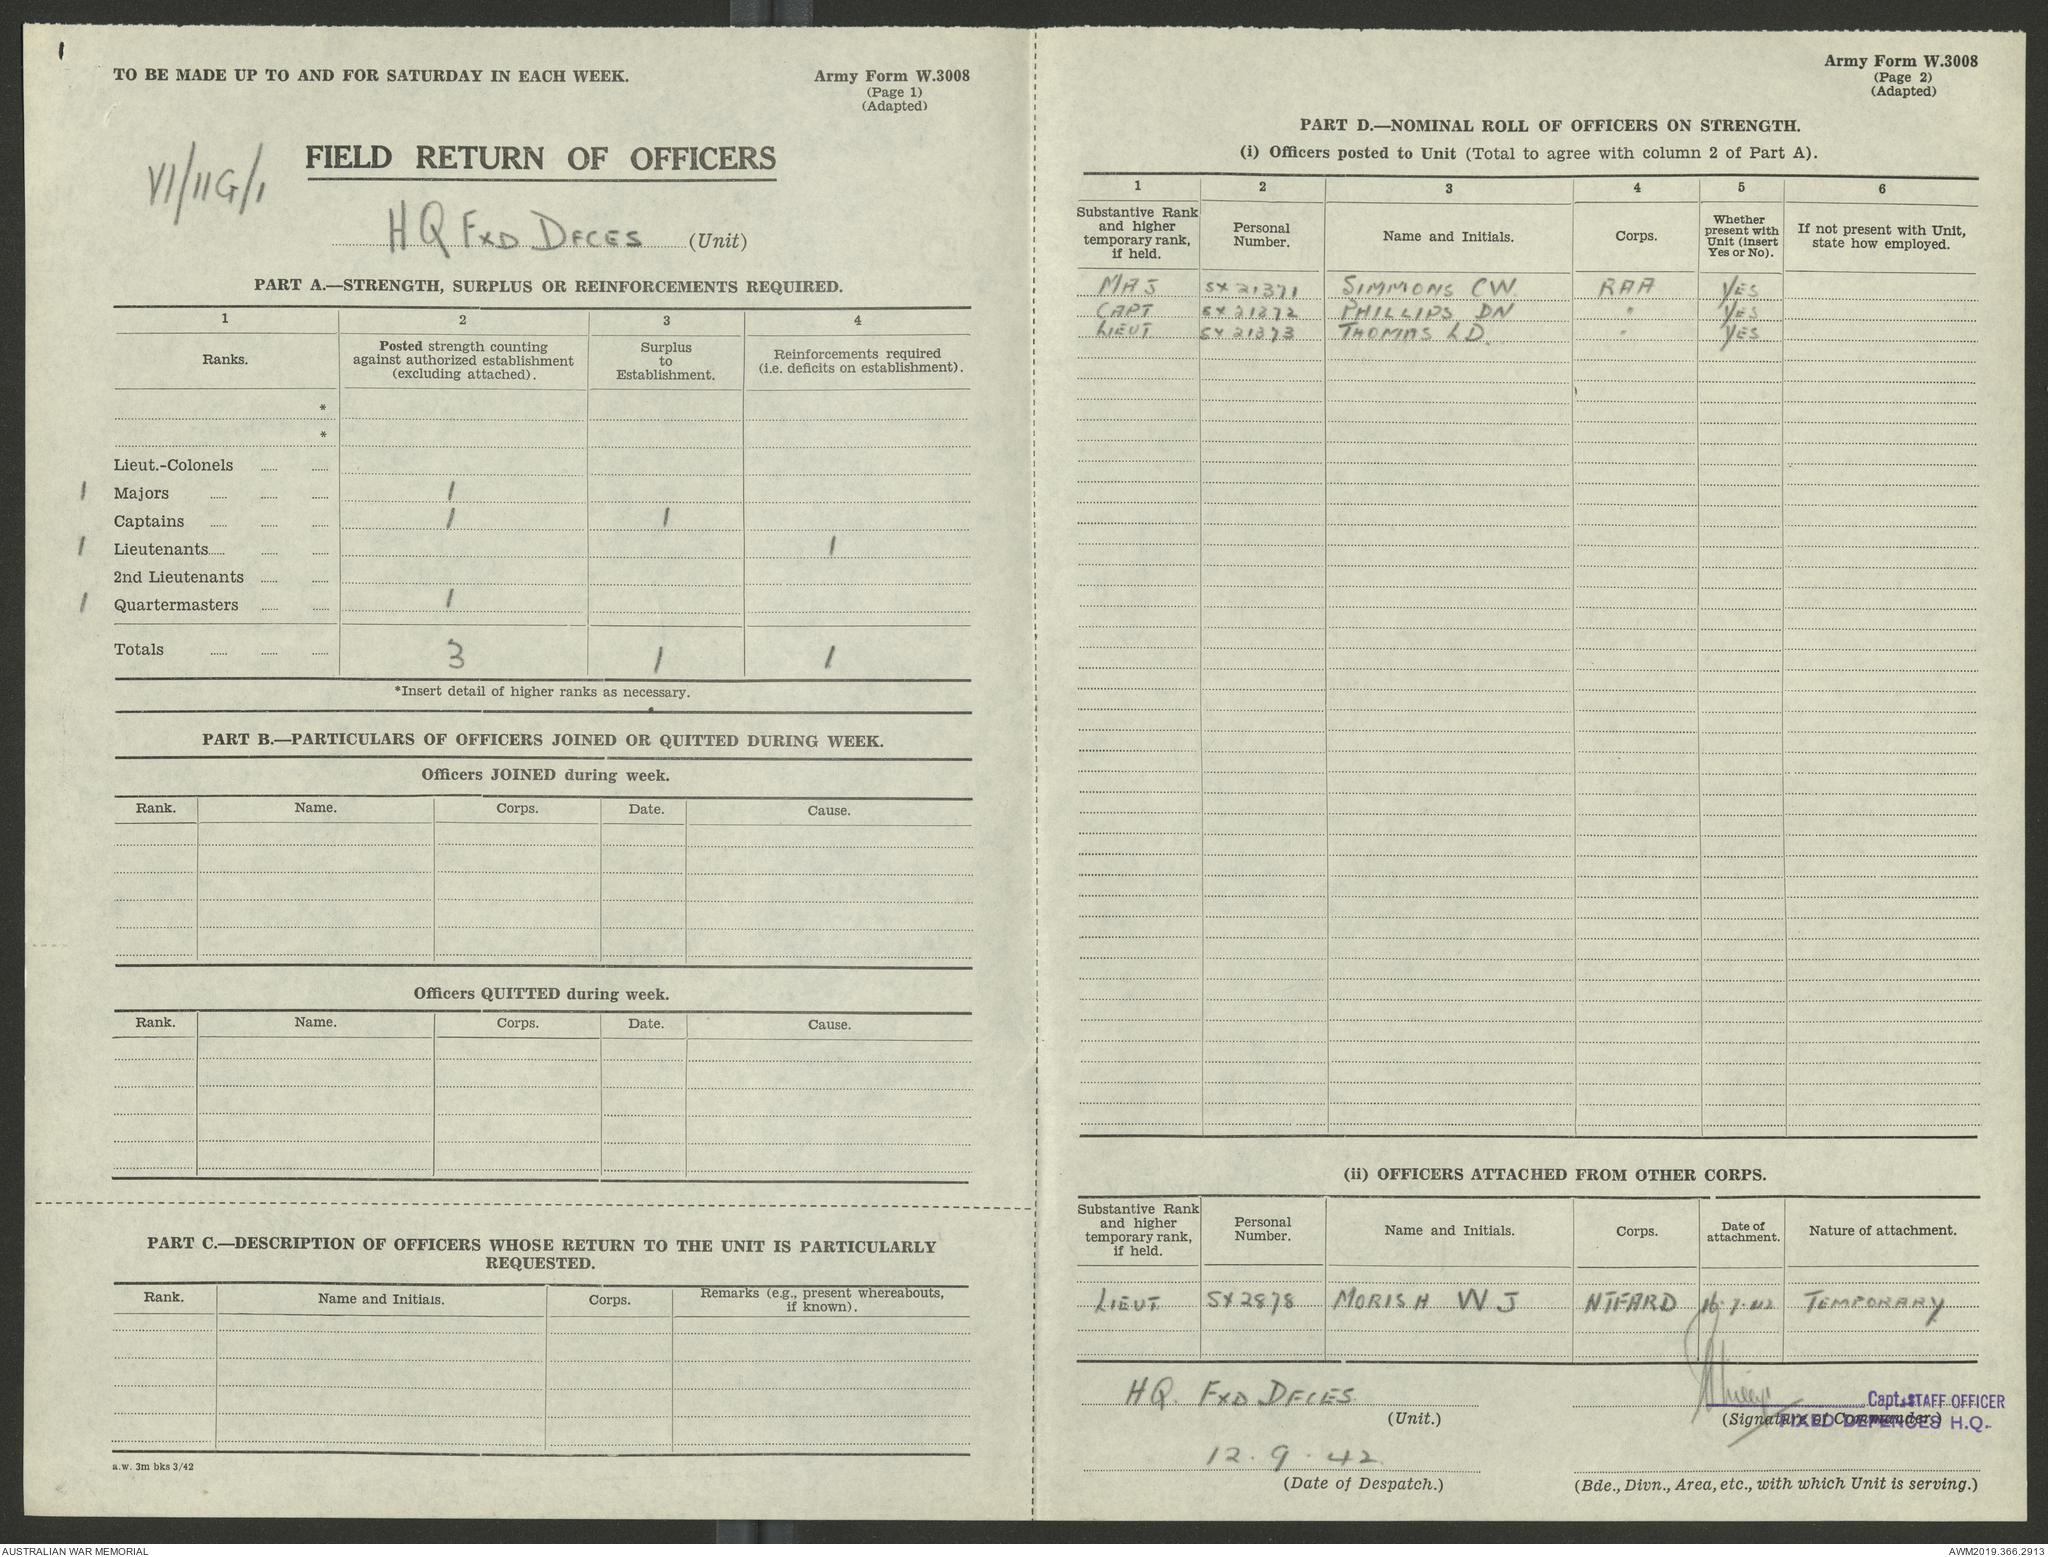 1
TO BE MADE UP TO AND FOR SATURDAY IN EACH WEEK.
Army Form W.3008
(Page 1)
(Adapted)
VI/11G/1
FIELD RETURN OF OFFICERS
HQ FXD DFCES (Unit)
PART A.—STRENGTH, SURPLUS OR REINFORCEMENTS REQUIRED.
1 2 3 4
Ranks. Posted strength counting against authorized establishment (excluding attached). Surplus to Establishment. Reinforcements required (i.e. deficits on establishment).
*
*
Lieut.-Colonels
1 Majors 1
Captains 1 1
1 Lieutenants 1
2nd Lieutenants
1 Quartermasters 1
Totals 3 1 1
*Insert detail of higher ranks as necessary.
PART B.—PARTICULARS OF OFFICERS JOINED OR QUITTED DURING WEEK.
Officers JOINED during week.
Rank. Name. Corps. Date. Cause.
Officers QUITTED during week.
Rank. Name. Corps. Date. Cause.
PART C.—DESCRIPTION OF OFFICERS WHOSE RETURN TO THE UNIT IS PARTICULARLY
REQUESTED.
Rank. Name and Initials. Corps. Remarks (e.g., present whereabouts, if known).
a.w. 3m bks 3/42
Army Form W.3008
(Page 2)
(Adapted)
PART D.—NOMINAL ROLL OF OFFICERS ON STRENGTH.
(i) Officers posted to Unit (Total to agree with column 2 of Part A).
1 2 3 4 5 6
Substantive Rank and higher temporary rank, if held. Personal Number. Name and Initials. Corps. Whether present with Unit (insert Yes or No). If not present with Unit, state how employed.
MAJ SX21371 SIMMONS CW. RAA YES
CAPT SX21372 PHILLIPS DN " YES
LIEUT SX21373 THOMAS LD. " YES
(ii) OFFICERS ATTACHED FROM OTHER CORPS.
Substantive Rank and higher temporary rank, if held. Personal Number. Name and Initials. Corps. Date of attachment. Nature of attachment.
LIEUT SX2878 MORISH WJ NTFARD 16.7.42 TEMPORARY
HQ. FXD DFCES.
(Unit.)
Capt. STAFF OFFICER
(Signature of Commander.)
FIXED DEFENCES H.Q.
12.9.42
(Date of Despatch.)
(Bde., Divn., Area, etc., with which Unit is serving.)
AUSTRALIAN WAR MEMORIAL
AWM2019.366.2913